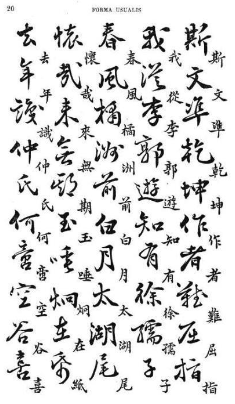 20 FORMA USUALIS
斯文準乾坤作者難屈指
斯文準乾坤作者難屈指
我從李郭遊知有徐孺子
我從李郭遊知有徐孺子
春風橘洲前白月太湖尾
春風橘洲前白月太湖尾
懷哉來無期玉唾炯在紙
懷哉來無期玉唾炯在紙
去年識仲氏何啻空谷喜
去年識仲氏何啻空谷喜